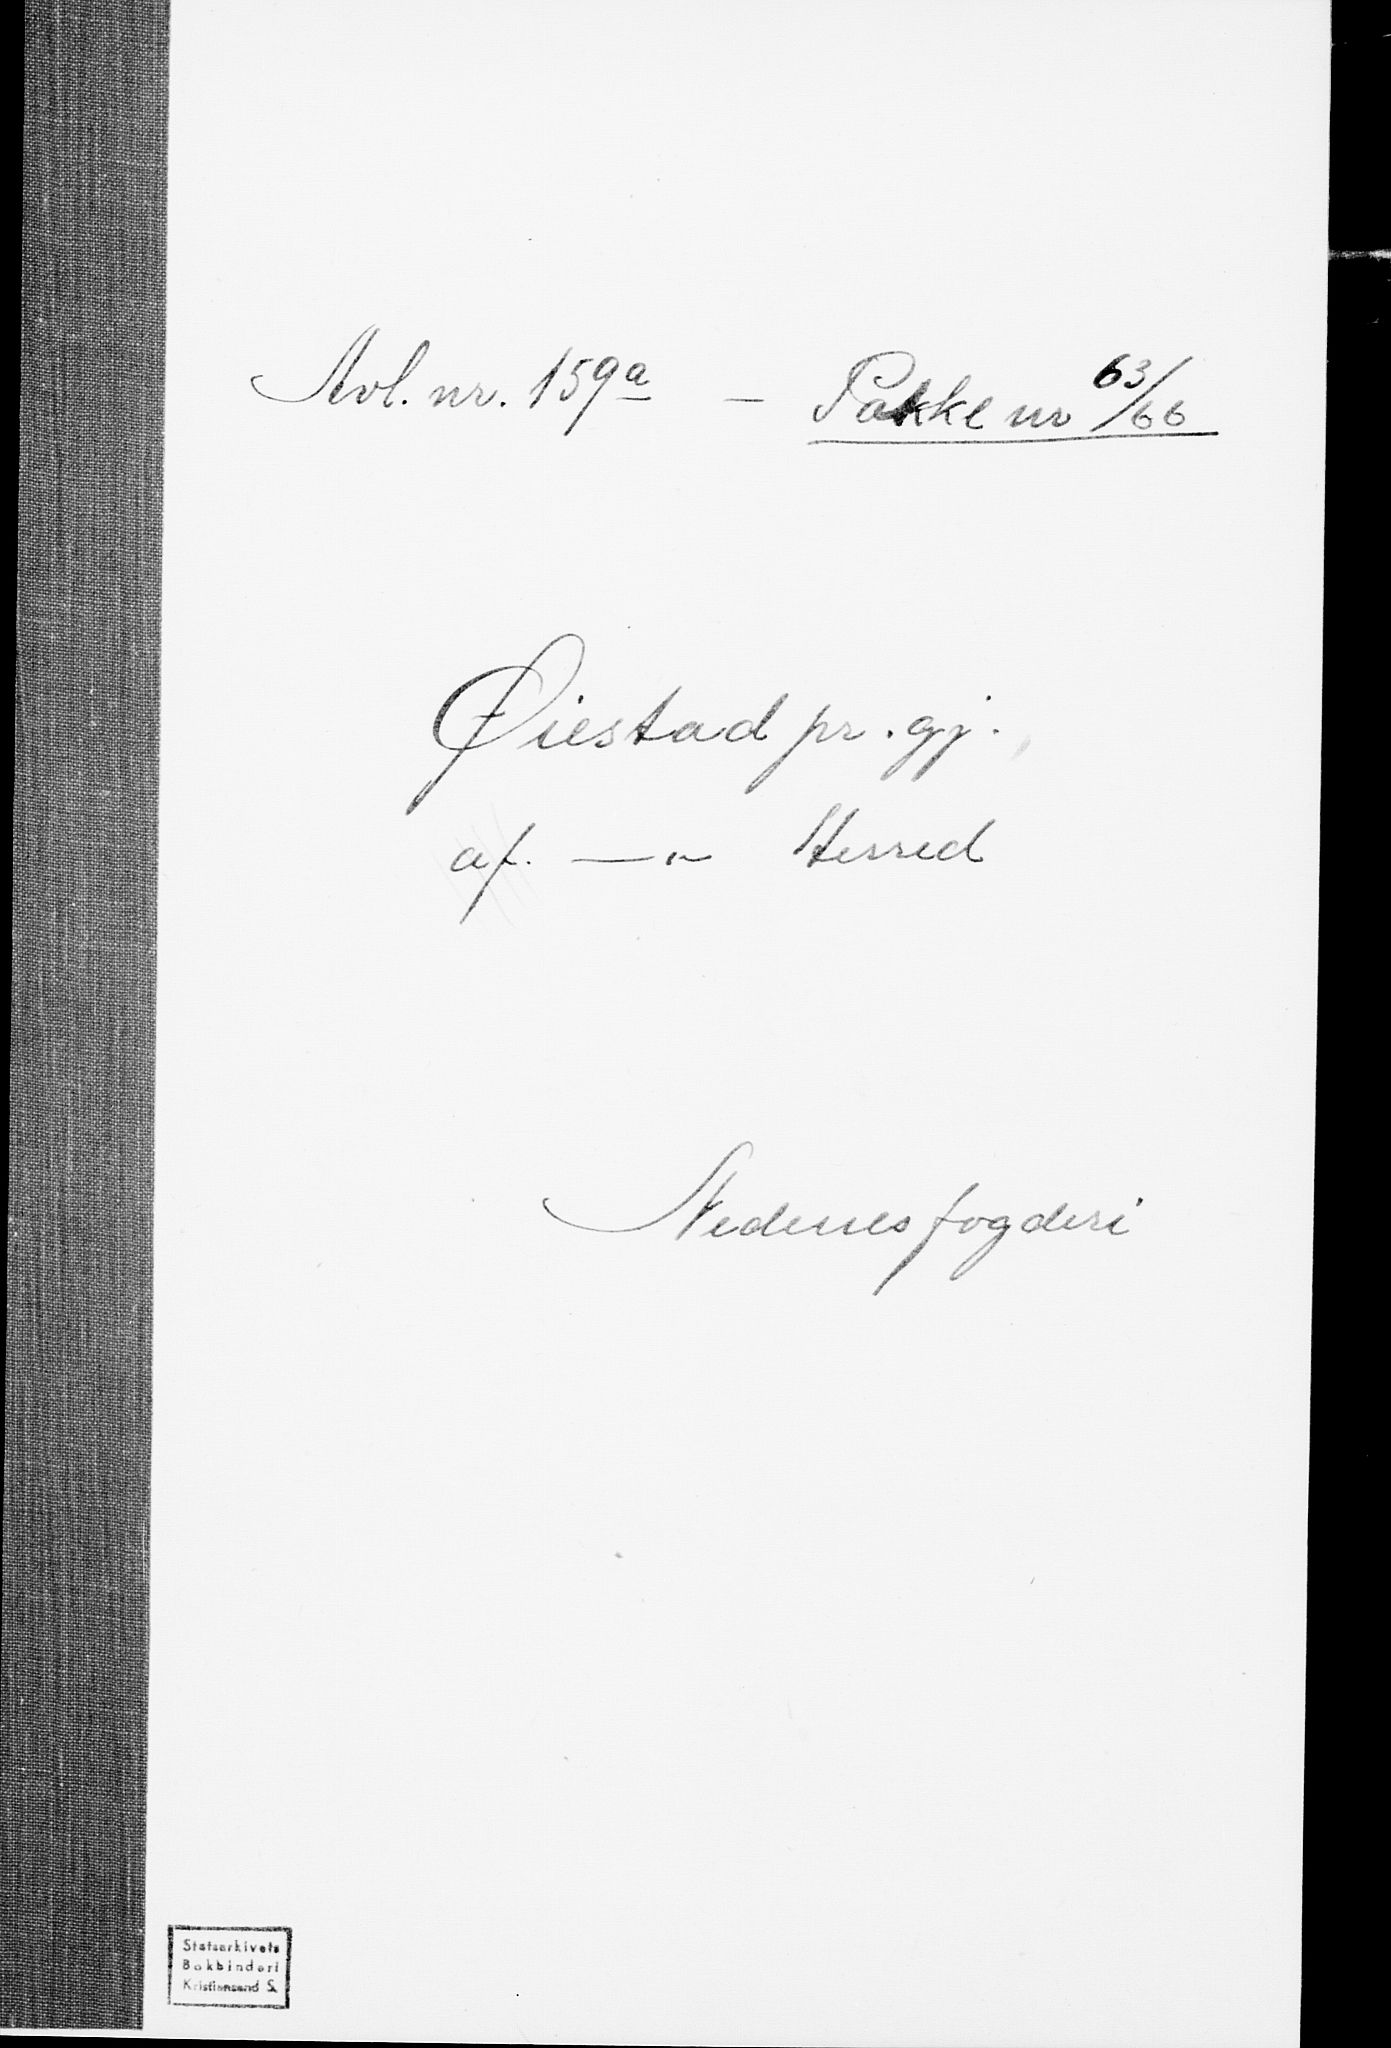 Avl. nr. 159a – Pakke nr 63/66
Øiestad pr. gj.
af. —"— Herred
Nedenes fogderi
Statsarkivets
Bokbinderi
Kristiansand S.